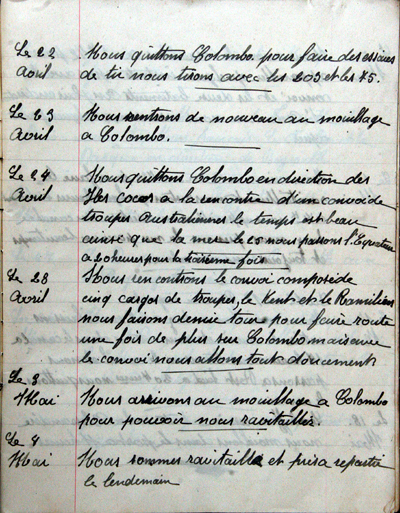 Le 22 Nous quittons Colombo pour faire des essais
Avril de tir nous tirons avec les 203 et les 75.
Le 23 Nous rentrons de nouveau au mouillage
Avril a Colombo.
Le 24 Nous quittons Colombo en direction des
Avril Iles cocos à la rencontre d'un convoi de
troupes Australiennes le temps est beau
ainsi que la mer le 25 nous passons l'Equateur
a 20 heures pour la troisième fois
Le 28 Nous rencontrons le convoi composé de
Avril cinq cargos de troupes, le Kent et le Ramilies
nous faisons demie tour pour faire route
une fois de plus sur Colombo mais avec
le convoi nous allons tout doucement
Le 3
Mai Nous arrivons au mouillage a Colombo
pour pouvoir nous ravitailler.
Le 4
Mai Nous sommes ravitaillé et près a repartir
le lendemain